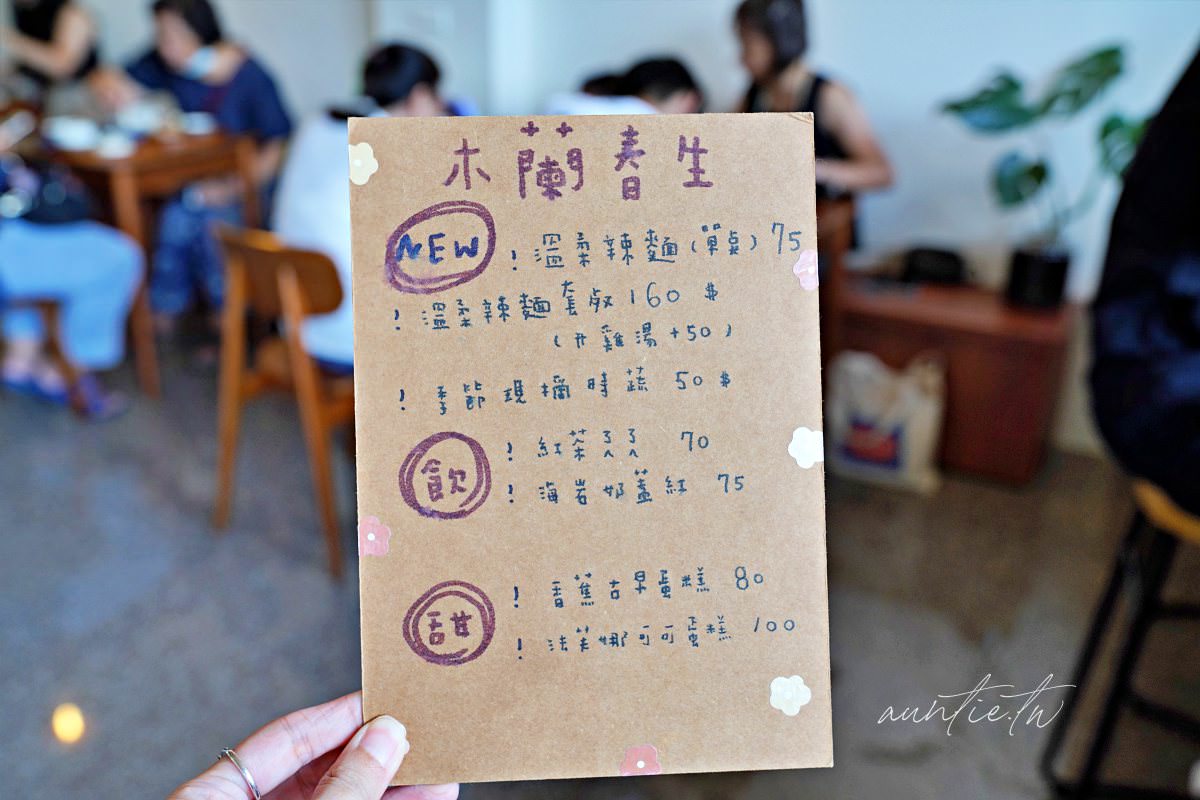 木蘭春生
NEW
! 溫柔辣麵(單点) 75
! 溫柔辣麵套餐 160 $
(升雞湯+50)
! 季節現摘時蔬 50 $
飲
! 紅茶ㄟㄟ 70
! 海岩奶蓋紅 75
甜
! 香蕉古早蛋糕 80
! 法芙娜可可蛋糕 100
auntie.tw